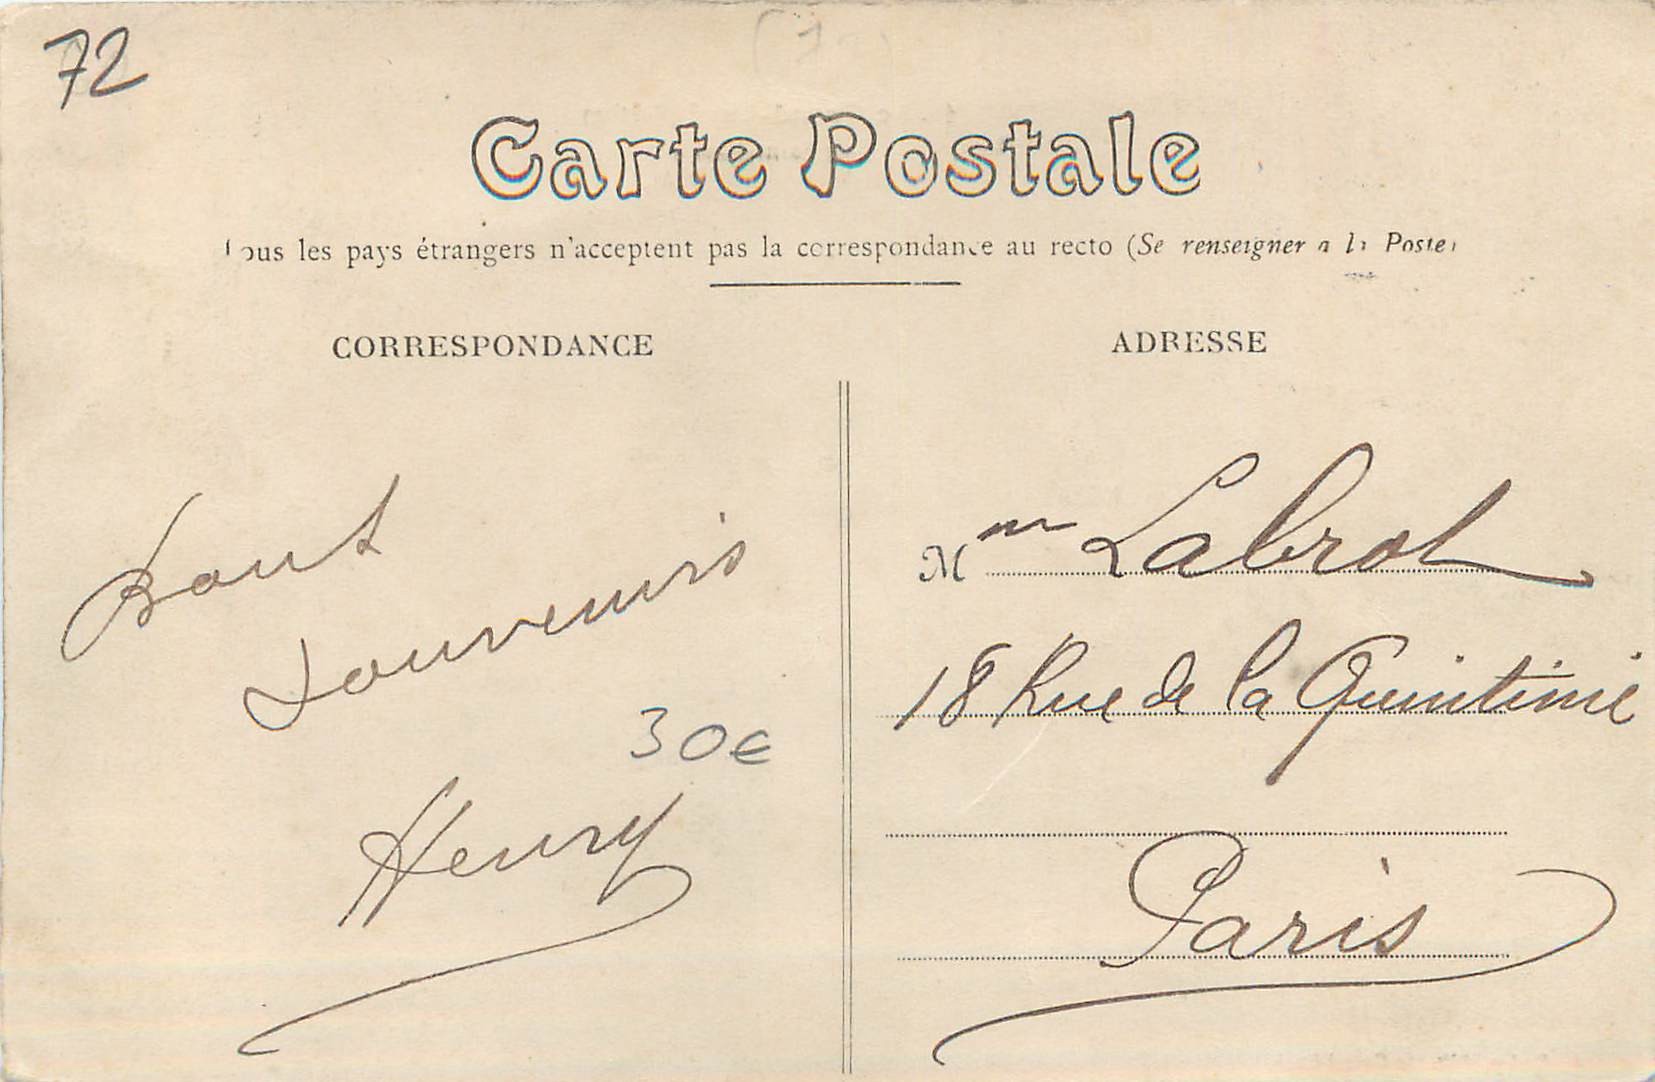 72
Carte Postale
Tous les pays étrangers n'acceptent pas la correspondance au recto (Se renseigner à la Poste)
CORRESPONDANCE
ADRESSE
Bons
Souvenirs
30€
Henry
Mme Labrol
18 Rue de la Quintinie
Paris